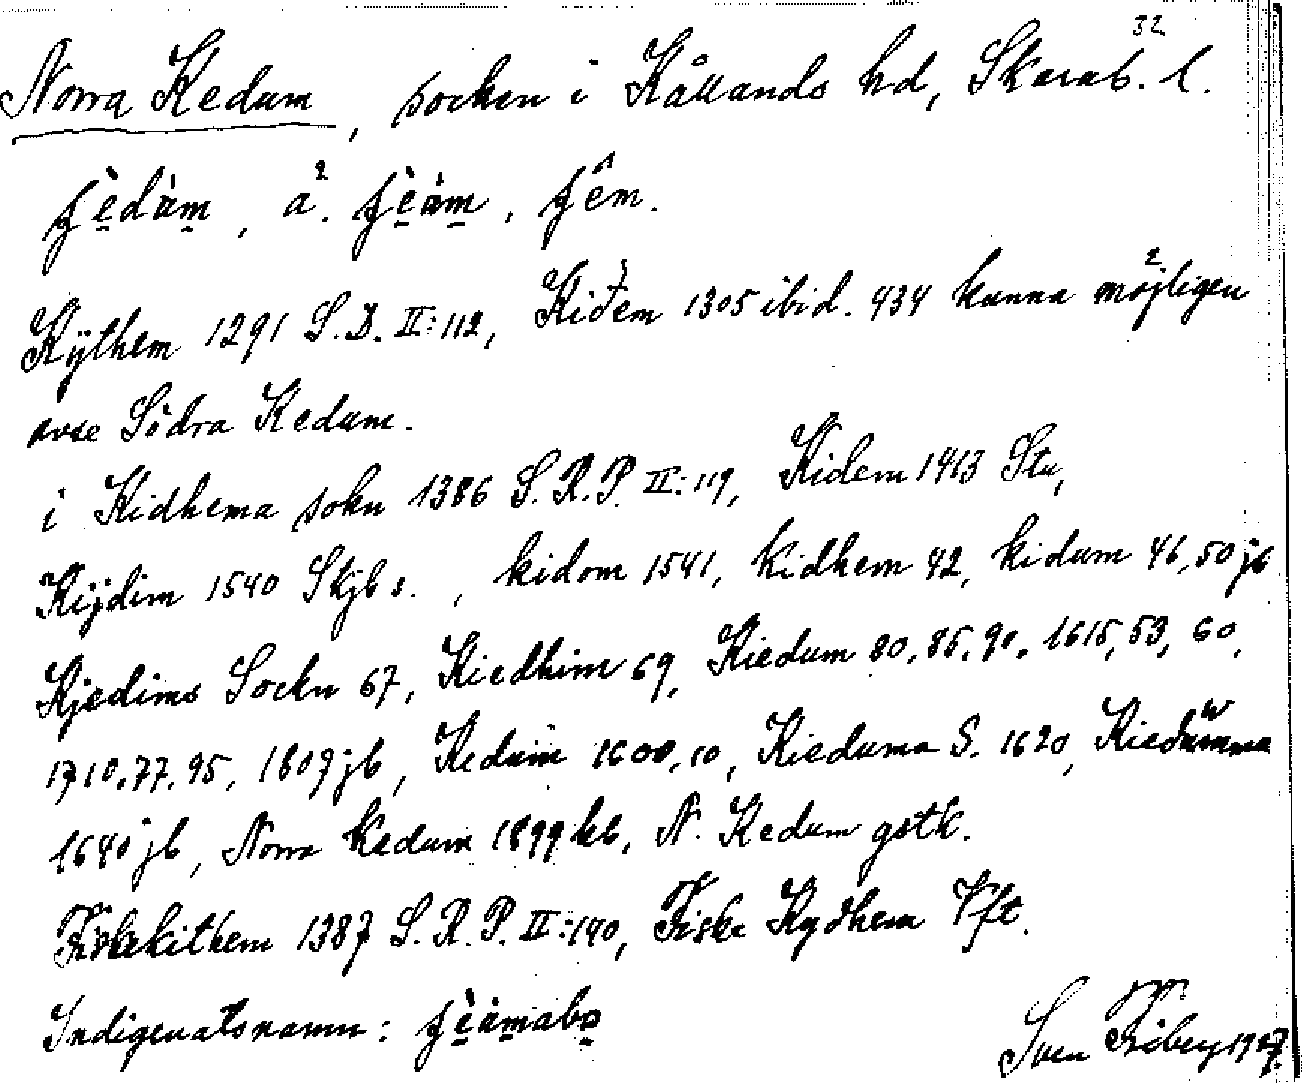 32
Norra Kedum, socken i Kållands hd, Skarab. l.
Kÿthem 1291 S.D. II:112, Kiđem 1305 ibid. 434 kunna möjligen
avse Södra Kedum.
i Kidhema sokn 1386 S.R.P. II:119, Kidem 1413 Stu,
Kijdim 1540 Skjb s., kidom 1541, kidhem 42, kidum 46, 50 jb
Kjedims Sockn 67, Kiedhim 69, Kiedum 80, 85, 90, 1615, 53, 60,
1710, 77, 95, 1809 jb, Kedum 1600, 10, Kieduma S. 1620, Kiedumma
1640 jb, Norra Kedum 1899 kb, N. Kedum gstk.
Fiskekithem 1387 S.R.P. II:140, Fiske Kydhem Vft.
Indigenatsnamn:
Sven